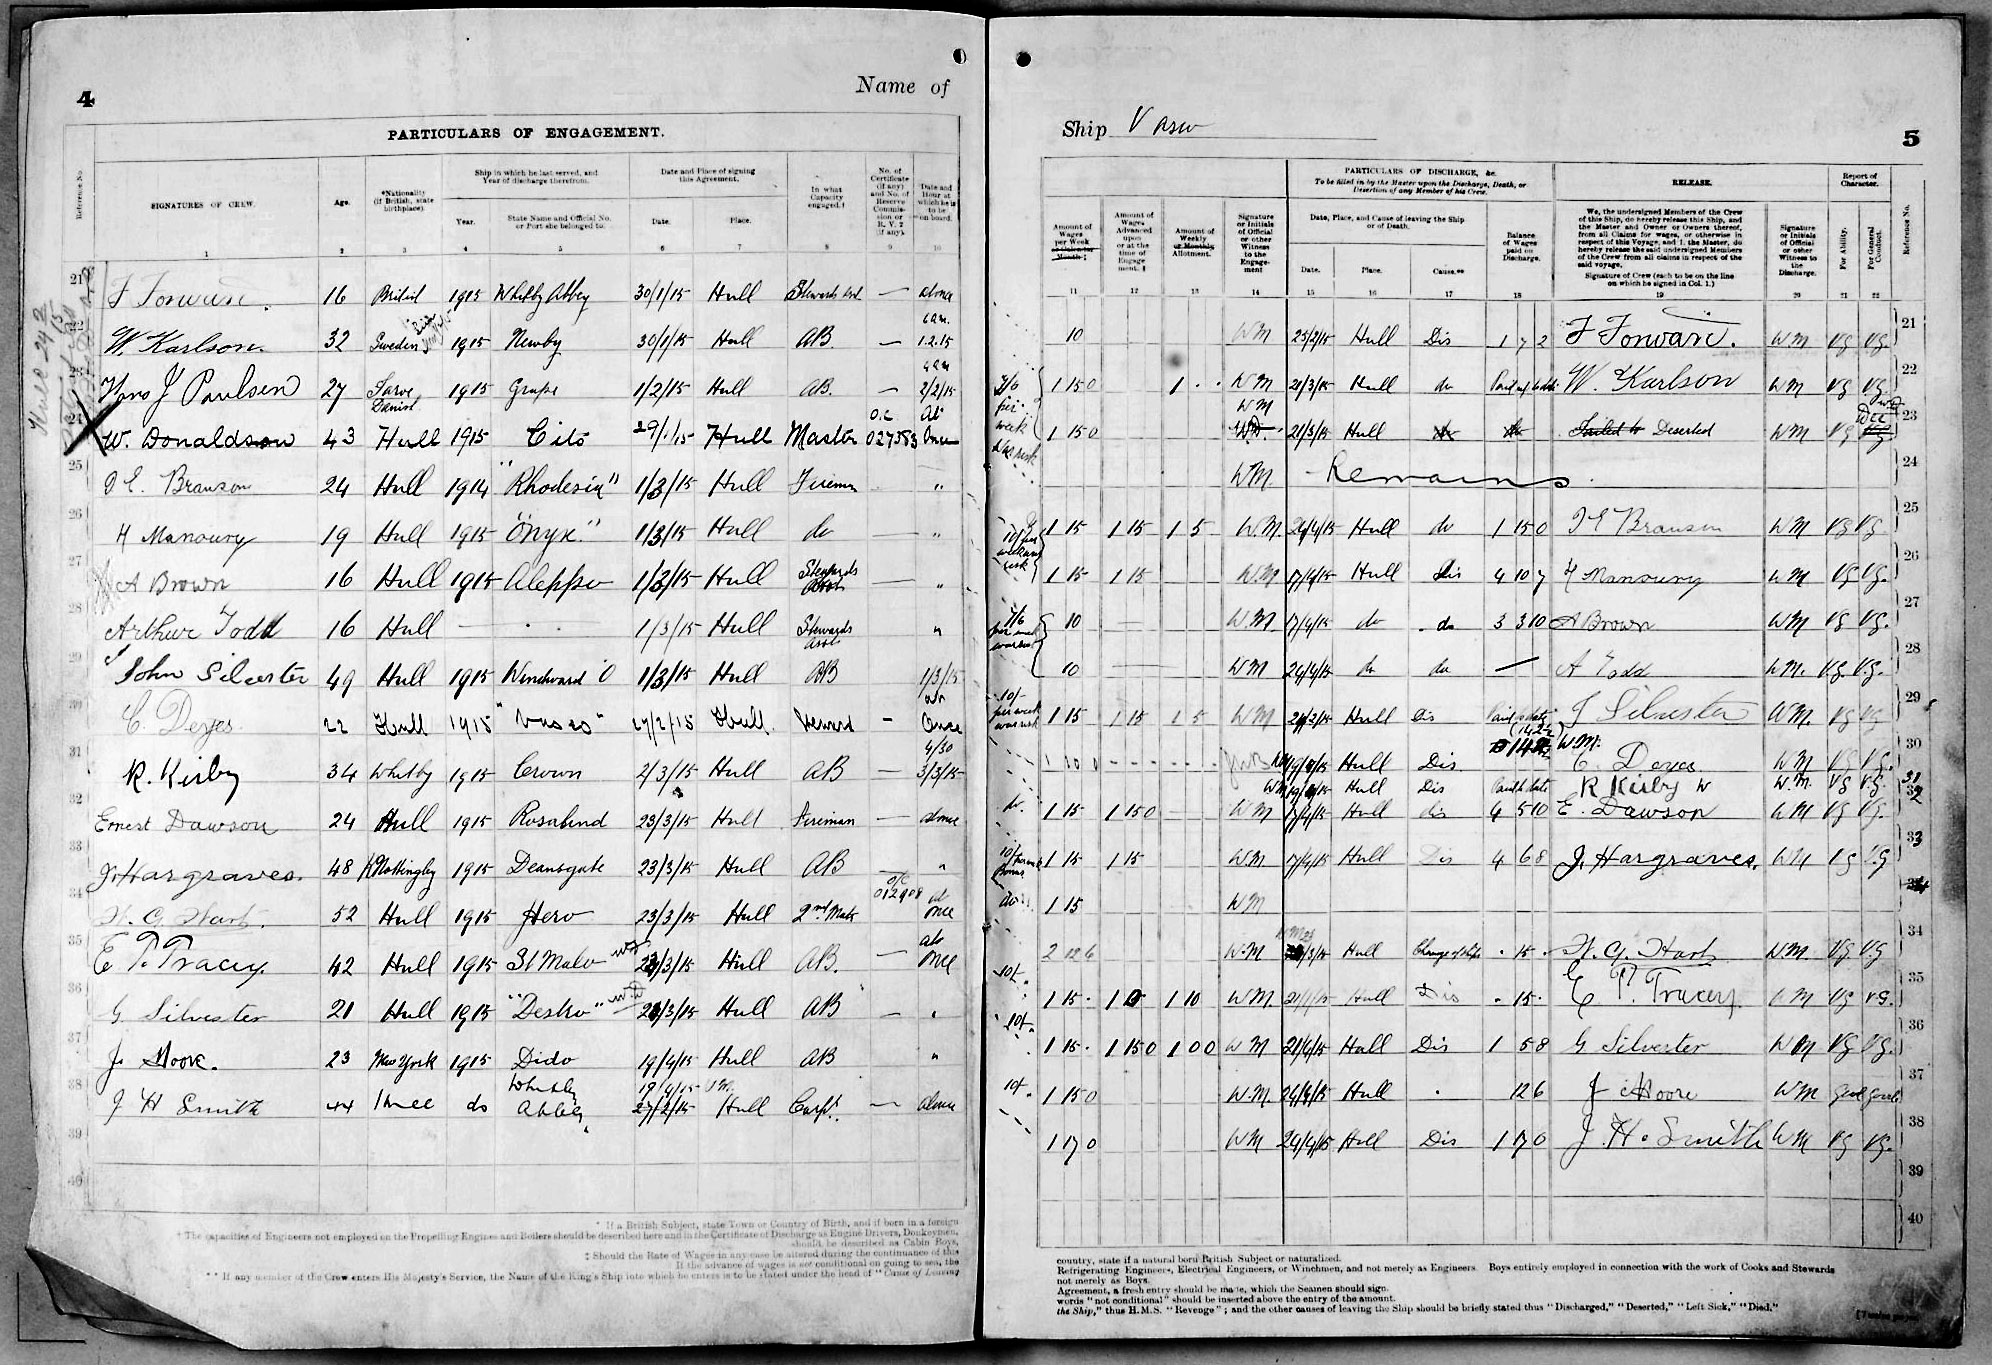 4
Name of
PARTICULARS OF ENGAGEMENT.
Reference No.
SIGNATURES OF CREW.
Age.
*Nationality (if British, state birthplace).
Ship in which he last served, and Year of discharge therefrom.
Year.
State Name and Official No. or Port she belonged to.
Date and Place of signing this Agreement.
Date.
Place.
In what Capacity engaged.†
No. of Certificate (if any) and No. of Reserve Commission or R.V. 2 (if any).
Date and Hour at which he is to be on board.
1 2 3 4 5 6 7 8 9 10
21 F Forward 16 British 1915 Whitby Abbey 30/1/15 Hull Stewards asst — at once
22 W. Karlson 32 Sweden 1915 Newby 30/1/15 Hull AB — 6 am. 1.2.15
23 Hans J Paulsen 27 Danish 1915 Grape 1/2/15 Hull AB. — 2/2/15
24 W. Donaldson 43 Hull 1915 Cito 29/1/15 Hull Master O.C 027383 At Once
25 Branson 24 Hull 1914 "Rhodesia" 1/3/15 Hull Fireman "
26 H Manoury 19 Hull 1915 "Onyx." 1/3/15 Hull do — "
27 A Brown 16 Hull 1915 Aleppo 1/3/15 Hull Stewards Asst — "
28 Arthur Todd 16 Hull — 1/3/15 Hull Stewards asst "
29 John Silvester 49 Hull 1915 Windward O 1/3/15 Hull AB 1/3/15
30 C. Deyes 22 Hull 1915 "Vasco" 27/2/15 Hull. Steward — at Once
31 R. Kirby 34 Whitby 1915 Crown 2/3/15 Hull AB — 4/30 3/3/15
32 Ernest Dawson 24 Hull 1915 Rosalind 23/3/15 Hull Fireman — at once
33 J. Hargraves. 48 Knottingley 1915 Deansgate 23/3/15 Hull AB — "
34 W. G. Hart. 52 Hull 1915 Hero 23/3/15 Hull 2nd Mate O/C 012908 at once
35 E. T. Tracey. 42 Hull 1915 St Malo 23/3/15 Hull AB. — at once
36 G Silvester 21 Hull 1915 "Destro" 23/3/15 Hull AB —
37 J. Moore. 23 New York 1915 Dido 19/4/15 Hull AB "
38 J H Smith 44 Hull do Whitby Abbey 27/2/15 Hull Carpt. — at once
39
40
* If a British Subject, state Town or Country of Birth, and if born in a foreign
† The capacities of Engineers not employed on the Propelling Engines and Boilers should be described here and in the Certificate of Discharge as Engine Drivers, Donkeymen,
should be described as Cabin Boys,
‡ Should the Rate of Wages in any case be altered during the continuance of this
If the advance of wages is not conditional on going to sea, the
** If any member of the Crew enters His Majesty's Service, the Name of the King's Ship into which he enters is to be stated under the head of "Cause of Leaving
Ship Vasco
5
Amount of Wages per Week or Calendar Month.‡
Amount of Wages Advanced upon or at the time of Engagement.‡
Amount of Weekly or Monthly Allotment.
Signature or Initials of Official or other Witness to the Engagement
PARTICULARS OF DISCHARGE, &c.
To be filled in by the Master upon the Discharge, Death, or Desertion of any Member of his Crew.
Date, Place, and Cause of leaving the Ship or of Death.
Date. Place. Cause.**
Balance of Wages paid on Discharge.
RELEASE.
We, the undersigned Members of the Crew of this Ship, do hereby release this Ship, and the Master and Owner or Owners thereof, from all Claims for wages, or otherwise in respect of this Voyage, and I, the Master, do hereby release the said undersigned Members of the Crew from all claims in respect of the said voyage.
Signature of Crew (each to be on the line on which he signed in Col. 1.)
Signature or Initials of Official or other Witness to the Discharge.
Report of Character.
For Ability.
For General Conduct.
Reference No.
11 12 13 14 15 16 17 18 19 20 21 22
10 WM 25/2/15 Hull Dis 1 7 2 F Forward. WM VG VG. 21
1 15 0 1 . . WM 21/3/15 Hull do W. Karlson WM VG VG 22
1 15 0 WM 21/3/15 Hull Failed to Deserted WM VG 23
WM Remains 24
1 15 1 15 1 5 W.M. 24/4/15 Hull do 1 15 0 Branson WM VG VG. 25
1 15 1 15 WM 17/4/15 Hull dis 4 10 7 H Manoury WM VG VG. 26
7/6 10 WM 17/4/15 do do 3 3 10 A Brown WM VG VG. 27
10 WM 24/4/15 do do — A Todd WM. V.G. V.G. 28
10/- per week war risk 1 15 1 15 1 5 WM Hull dis J Silvester WM. VG VG 29
Hull Dis C. Deyes WM VG VG 30
Hull Dis R Kirby W.M. VG V.G. 31
1 15 1 15 0 WM 17/4/15 Hull dis 4 5 10 E. Dawson WM VG VG. 32
1 15 1 15 WM 17/4/15 Hull Dis 4 6 8 J. Hargraves. WM VG V.G 33
do 1 15 WM
2 12 6 W.M Hull Change of Ship . 15 . W. G. Hart W.M. V.G. V.G 34
10/- 1 15 . 1 10 WM. Hull Dis . 15 . E. T. Tracey. WM VG V.G. 35
10/- 1 15 . 1 15 0 1 0 0 WM 21/4/15 Hull Dis 1 5 8 G Silvester WM VG VG. 36
10/- 1 15 0 W.M. 24/4/15 Hull . 12 6 J Moore WM Good Good 37
1 17 0 WM 24/4/15 Hull Dis 1 17 0 J. H. Smith WM VG VG. 38
39
40
country, state if a natural born British Subject or naturalized.
Refrigerating Engineers, Electrical Engineers, or Winchmen, and not merely as Engineers. Boys entirely employed in connection with the work of Cooks and Stewards
not merely as Boys.
Agreement, a fresh entry should be made, which the Seamen should sign.
words "not conditional" should be inserted above the entry of the amount.
the Ship," thus H.M.S. "Revenge"; and the other causes of leaving the Ship should be briefly stated thus "Discharged," "Deserted," "Left Sick," "Died."